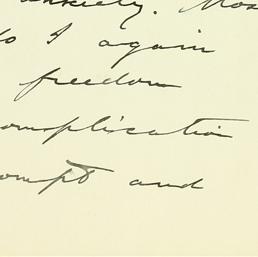 anxiety. Mos
do I again
freedom
omplication
ompt and